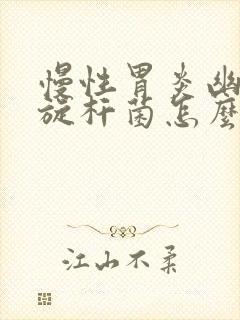 慢性胃炎幽
旋杆菌怎麼
江山不柔